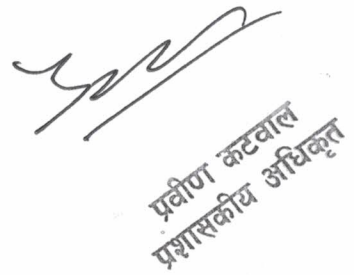 प्रवीण कटवाल
प्रशासकीय अधिकृत